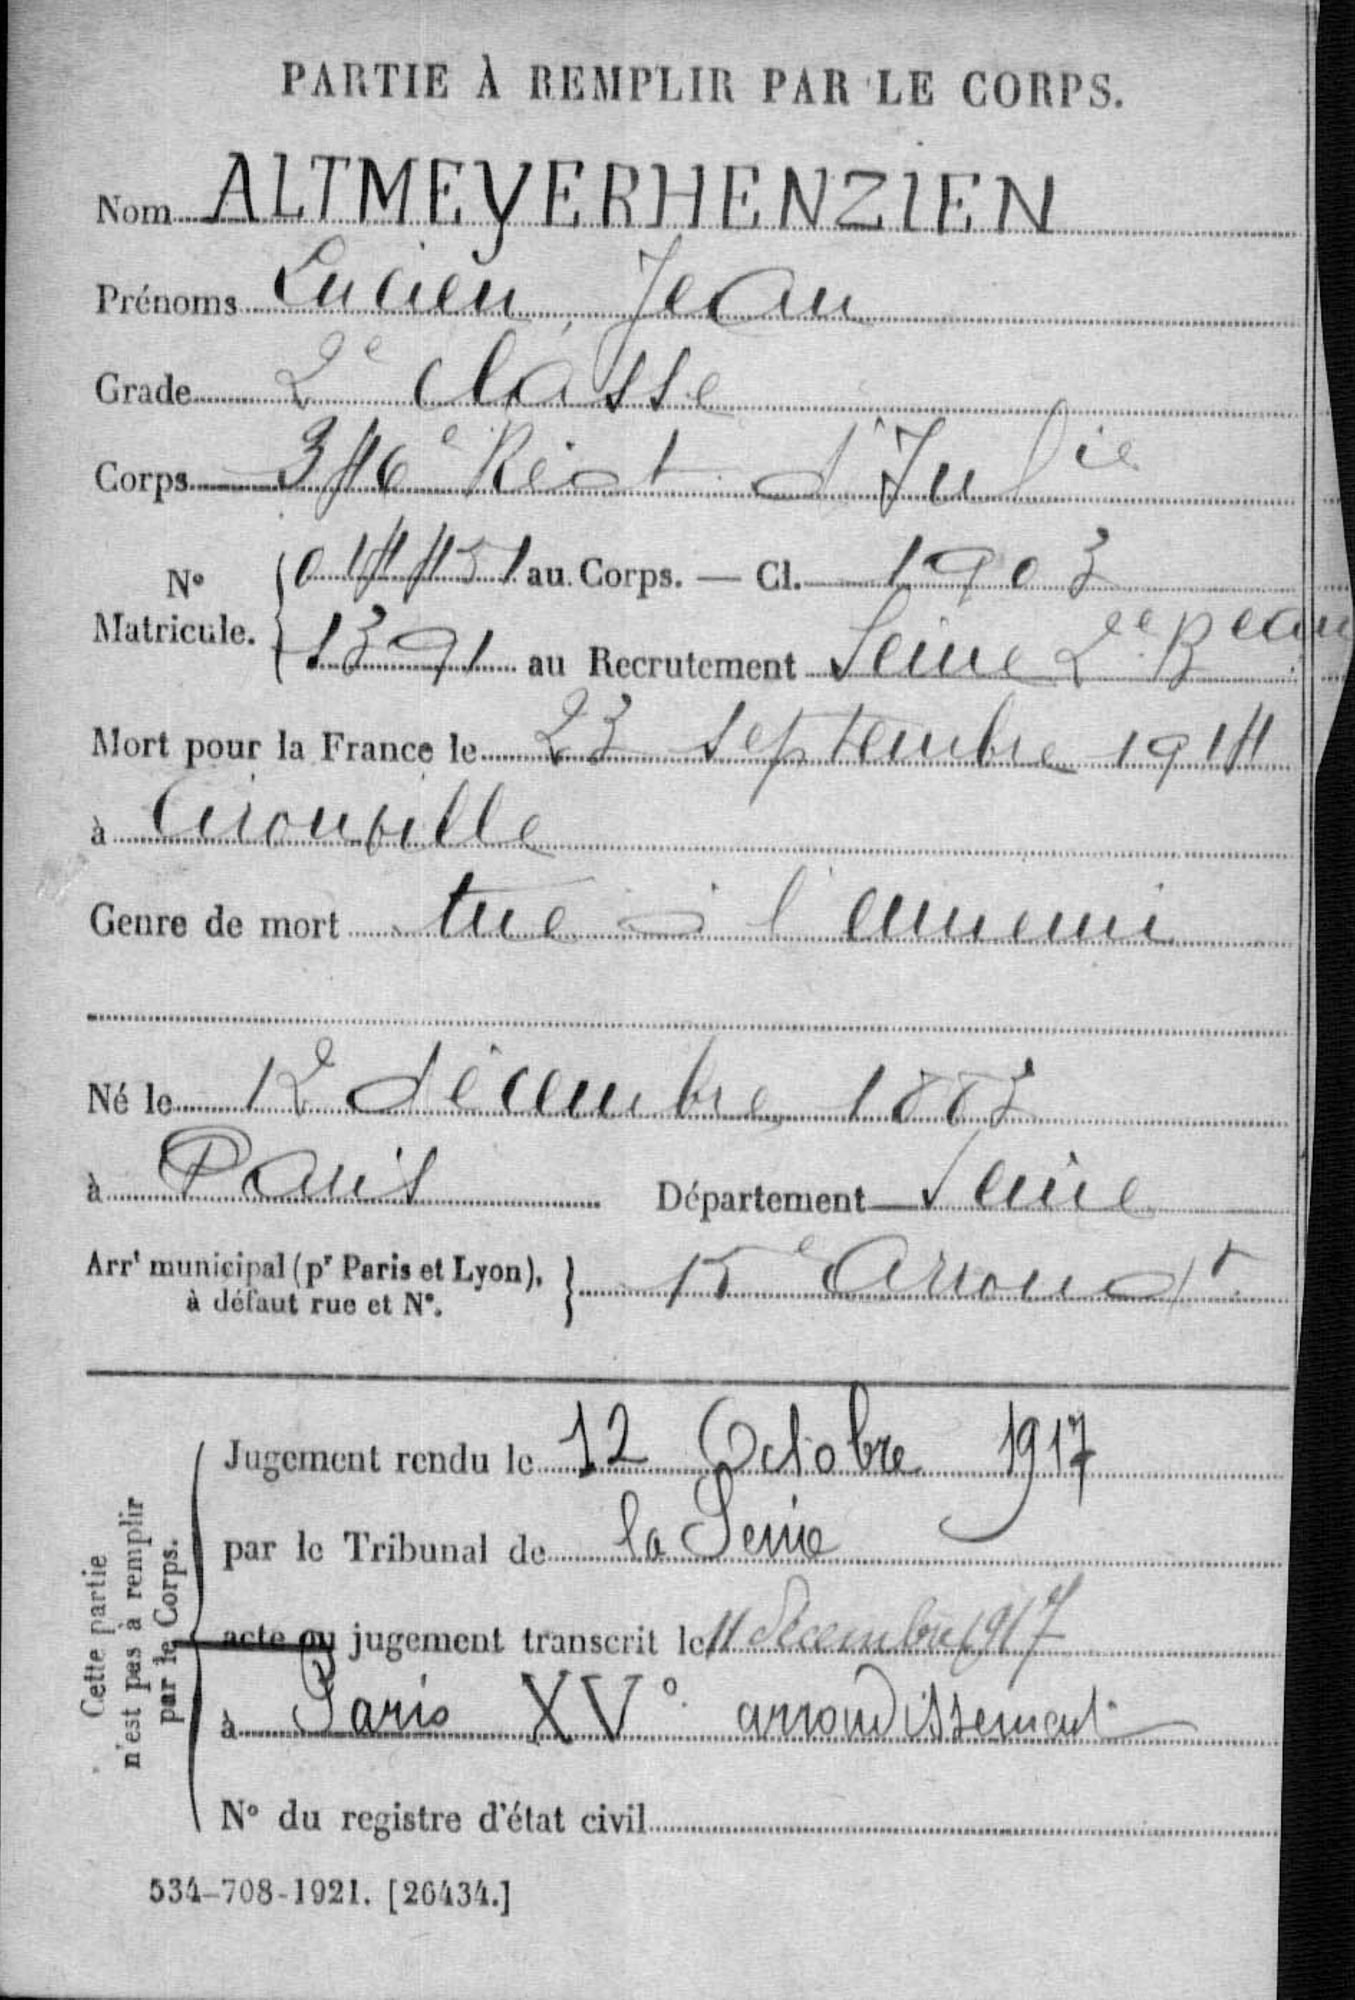 PARTIE À REMPLIR PAR LE CORPS.
Nom ALTMEYERHENZIEN
Prénoms Lucien, Jean
Grade 2e Classe
Corps 346e Régt d'Infie
No Matricule. { 014451 au Corps. — Cl. 1903
1391 au Recrutement Seine 2e Beau
Mort pour la France le 23 septembre 1914
à Girouville
Genre de mort tué à l'ennemi
Né le 12 décembre 1883
à Paris Département Seine
Arrt municipal (pr Paris et Lyon), à défaut rue et No. } 15e Arrondt
Cette partie n'est pas à remplir par le Corps.
Jugement rendu le 12 Octobre 1917
par le Tribunal de la Seine
acte ou jugement transcrit le 11 décembre 1917
à Paris XVo arrondissement
No du registre d'état civil
534-708-1921. [26434.]